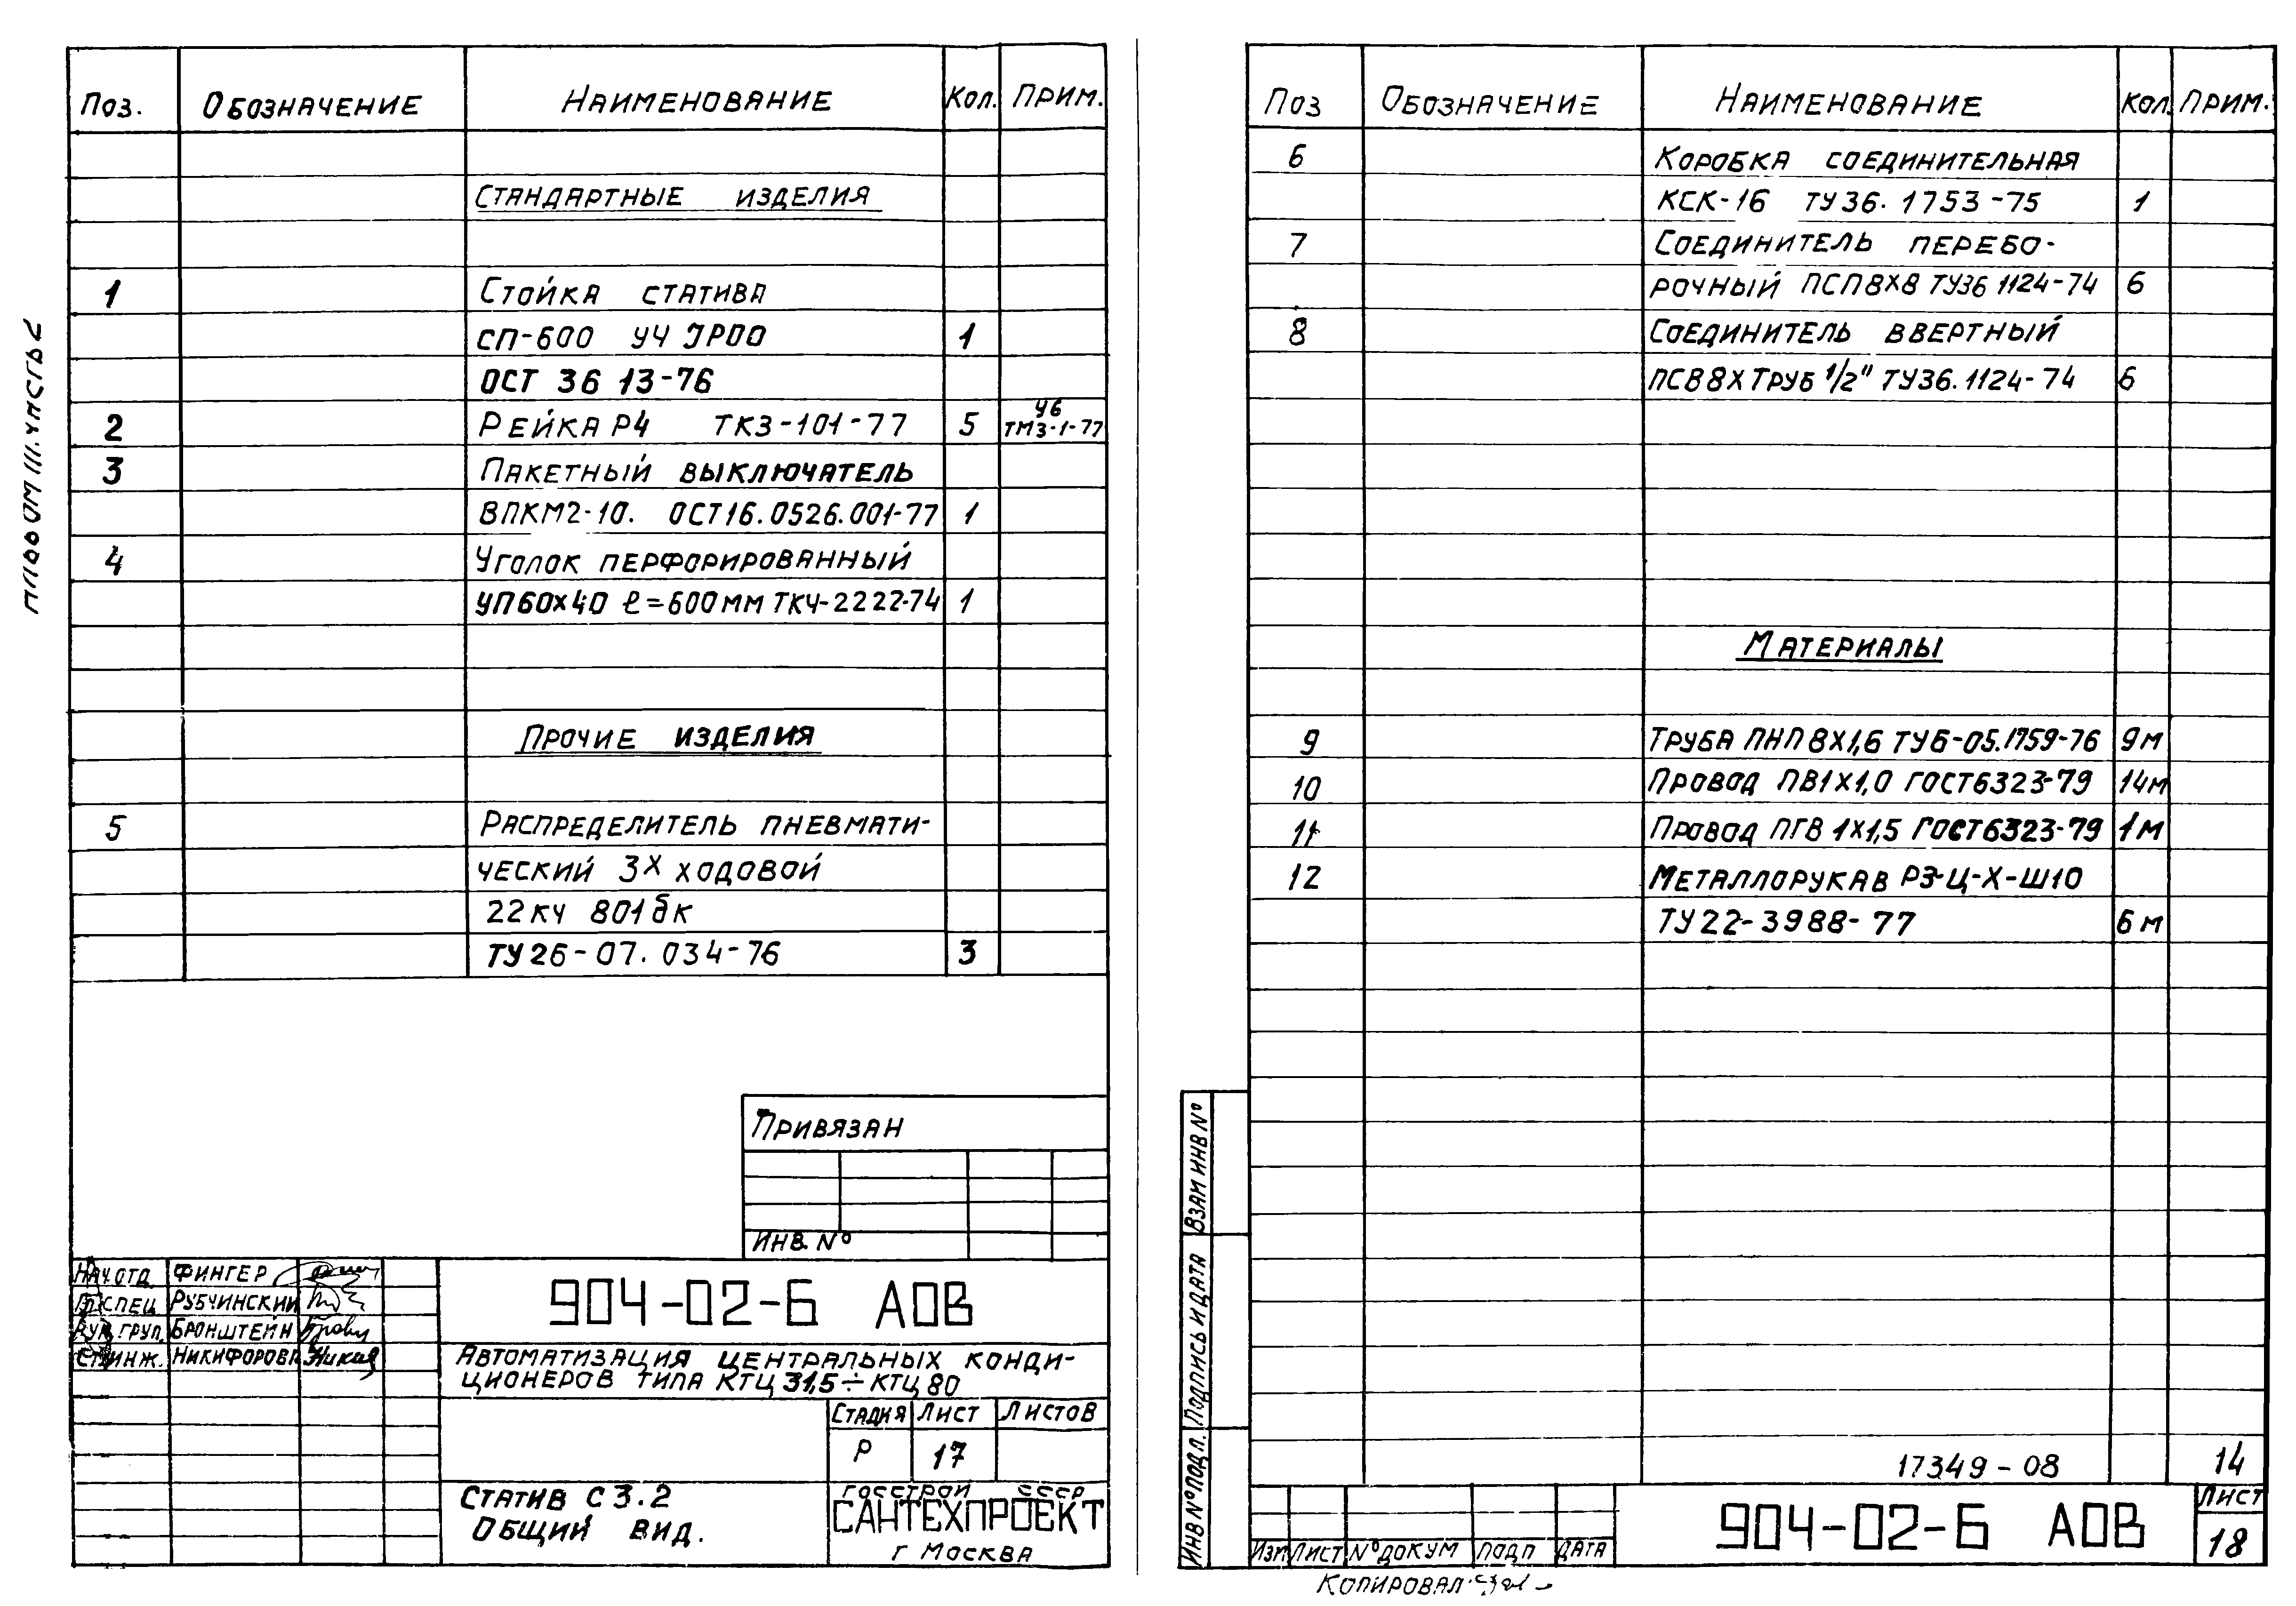 Поз. Обозначение Наименование Кол. Прим.
Стандартные изделия
1 Стойка статива
СП-600 УЧ IP00 1
ОСТ 36 13-76
2 Рейка Р4 ТК3-101-77 5 УБ ТМ3-1-77
3 Пакетный выключатель
ВПКМ2-10. ОСТ16.0526.001-77 1
4 Уголок перфорированный
УП60х40 ℓ=600мм ТКЧ-2222-74 1
Прочие изделия
5 Распределитель пневмати-
ческий 3х ходовой
22кч 801бк
ТУ26-07.034-76 3
Привязан
Инв. №
Нач.отд Фингер
Гл.спец Рубчинский
Рук.груп. Бронштейн
Ст.инж. Никифорова
904-02-Б АОВ
Автоматизация центральных конди-
ционеров типа КТЦ 31,5÷КТЦ 80
Стадия Лист Листов
Р 17
Статив С3.2
Общий вид.
Госстрой СССР
САНТЕХПРОЕКТ
г Москва
Поз Обозначение Наименование Кол. Прим.
6 Коробка соединительная
КСК-16 ТУ36.1753-75 1
7 Соединитель перебо-
рочный ПСП8х8 ТУ36 1124-74 6
8 Соединитель ввертный
ПСВ8хТруб 1/2" ТУ36.1124-74 6
Материалы
9 Труба ПНП 8х1,6 ТУ6-05.1759-76 9м
10 Провод ПВ1х1,0 ГОСТ6323-79 14м
11 Провод ПГВ 1х1,5 ГОСТ6323-79 1м
12 Металлорукав РЗ-Ц-Х-Ш10
ТУ22-3988-77 6м
Взам инв №
Подпись и дата
Инв № подл.
17349-08 14
Изм Лист № докум Подп Дата
904-02-Б АОВ
Лист
18
Копировал: